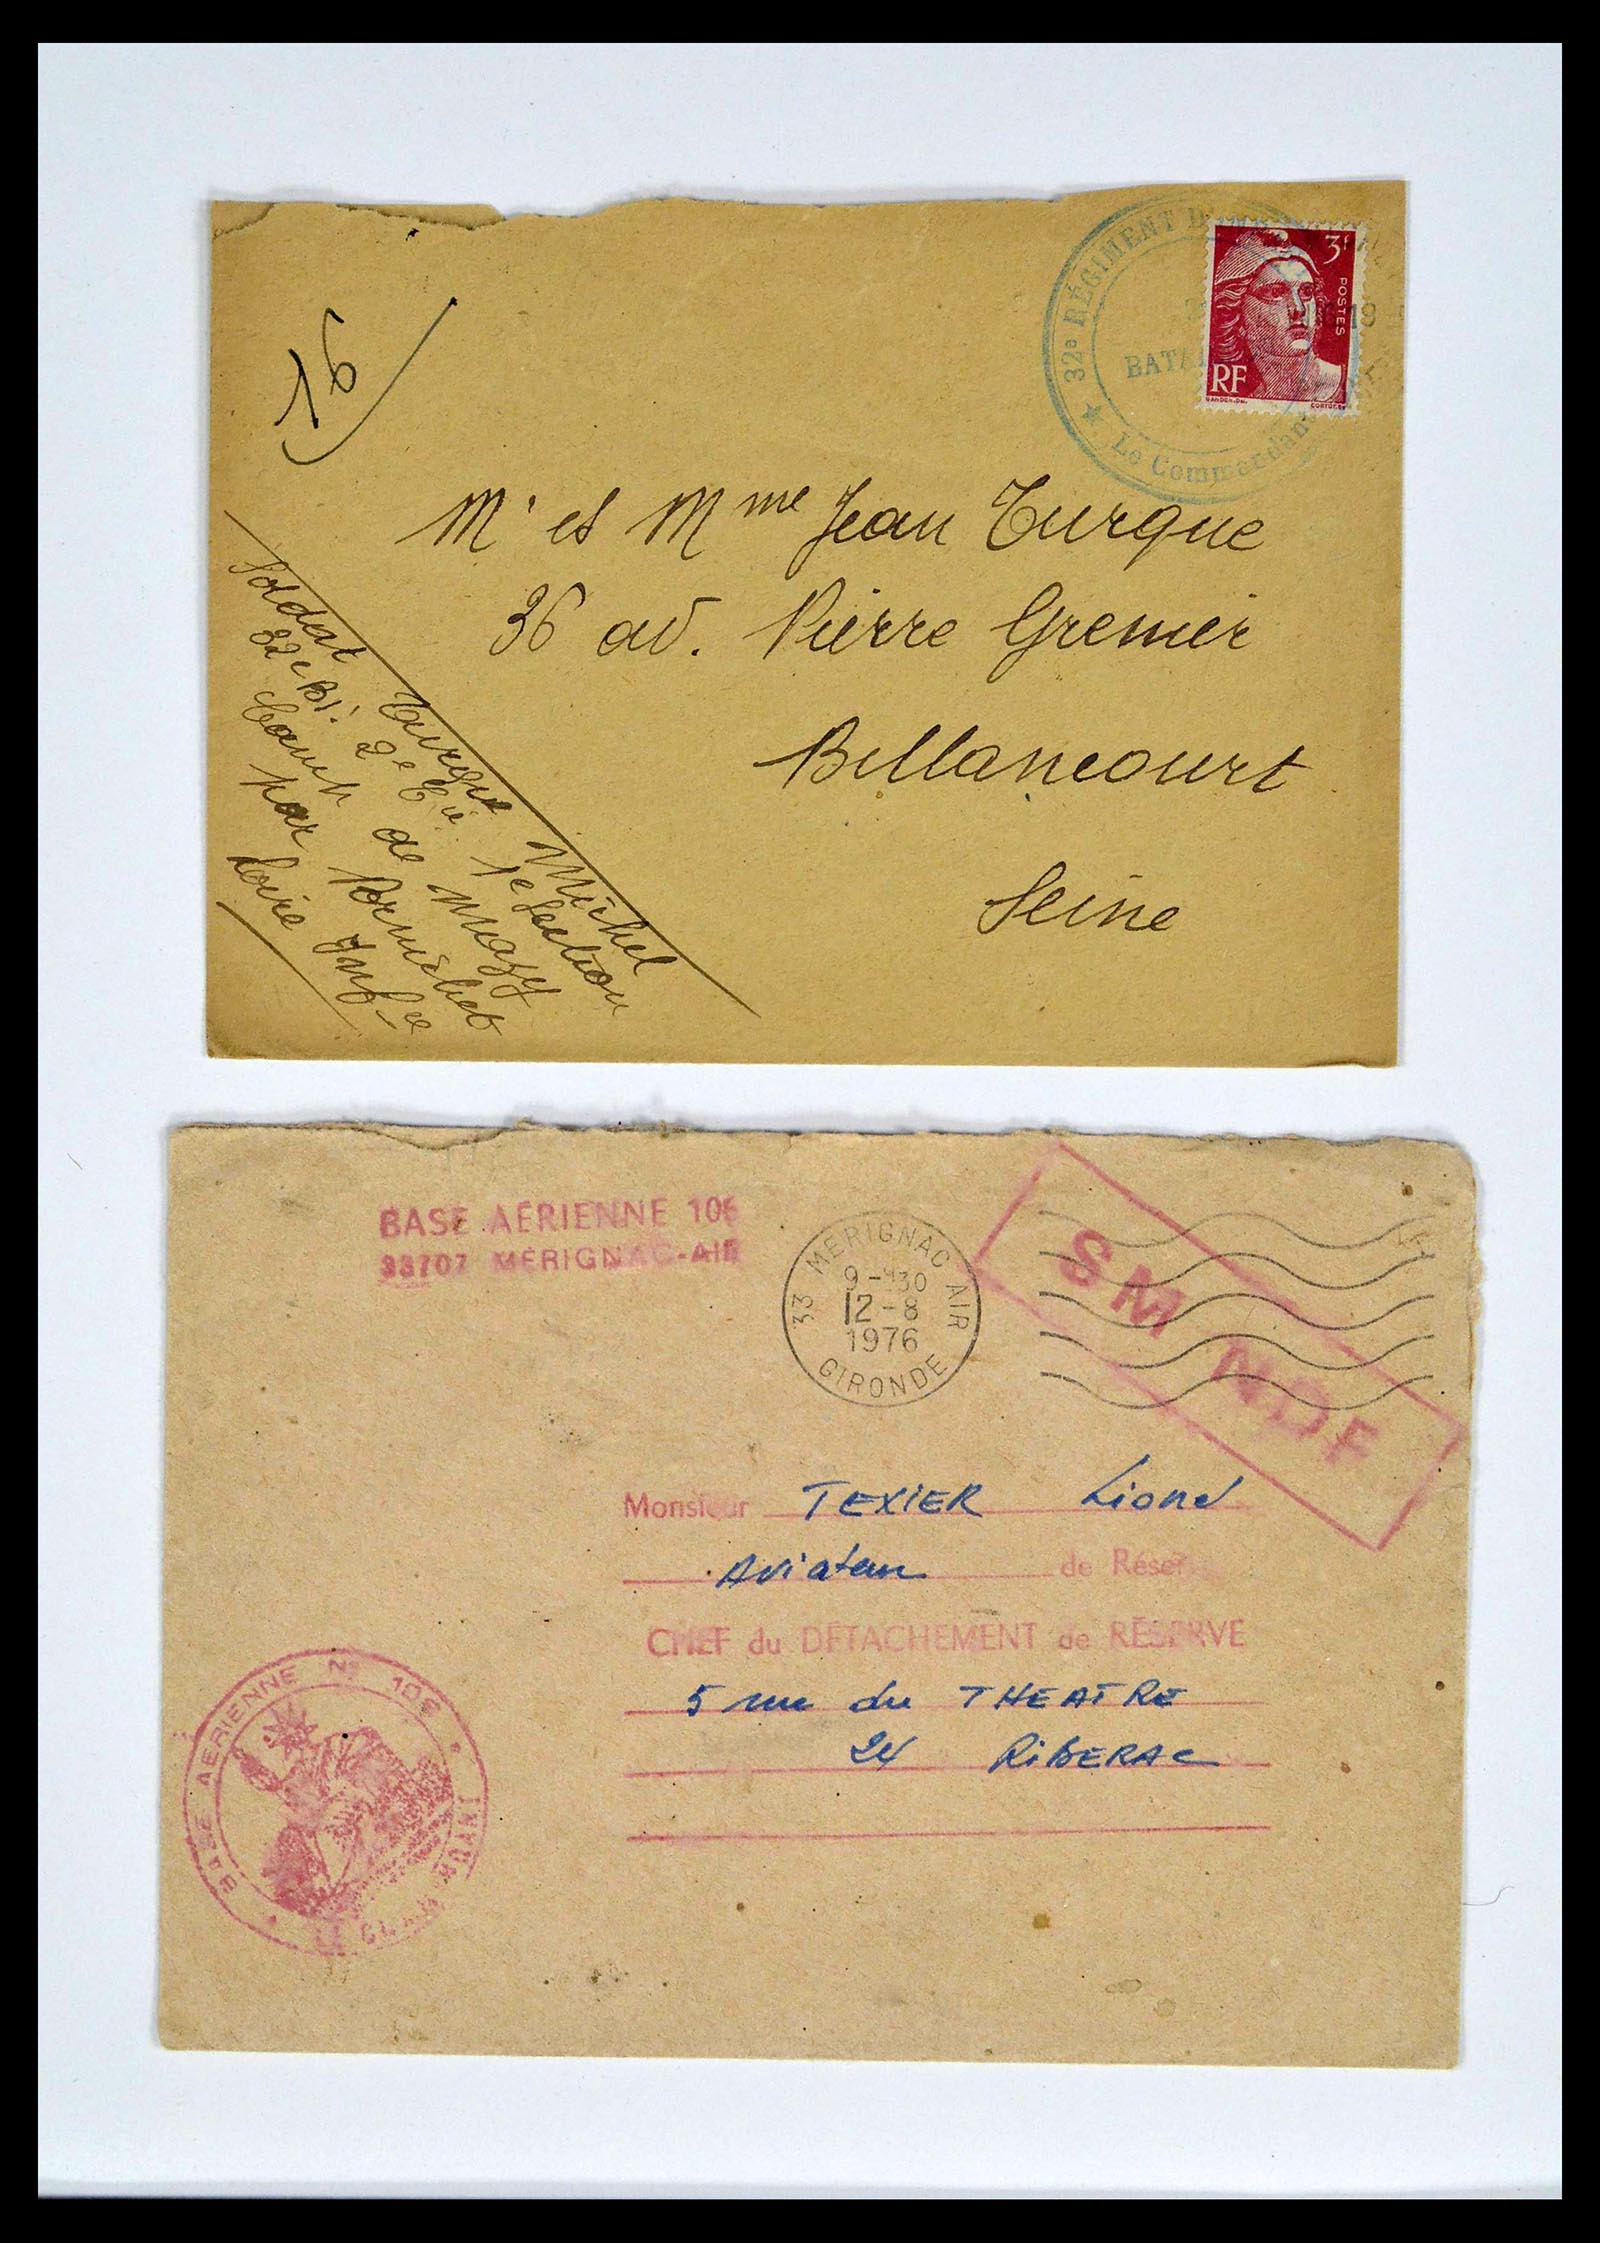 16
32e RÉGIMENT D'IN
BATA
19
★ Le Commandant
3F
POSTES
RF
GANDON.DEL.
CORTOT.SC
Mr et Mme Jean Turque
36 av. Pierre Grenier
Billancourt
Seine
Soldat Turque Michel
32e B.I. 2e Cie 1e Section
Camp de Mazy
par Pornichet
Loire Infre
BASE AÉRIENNE 106
33707 MÉRIGNAC-AIR
33 MERIGNAC AIR
9-H30
12-8
1976
GIRONDE
SM NDF
Monsieur TEXIER Lionel
Aviateur de Réser
CHEF du DÉTACHEMENT de RÉSERVE
5 rue du THEATRE
24 RIBERAC
BASE AERIENNE N° 106